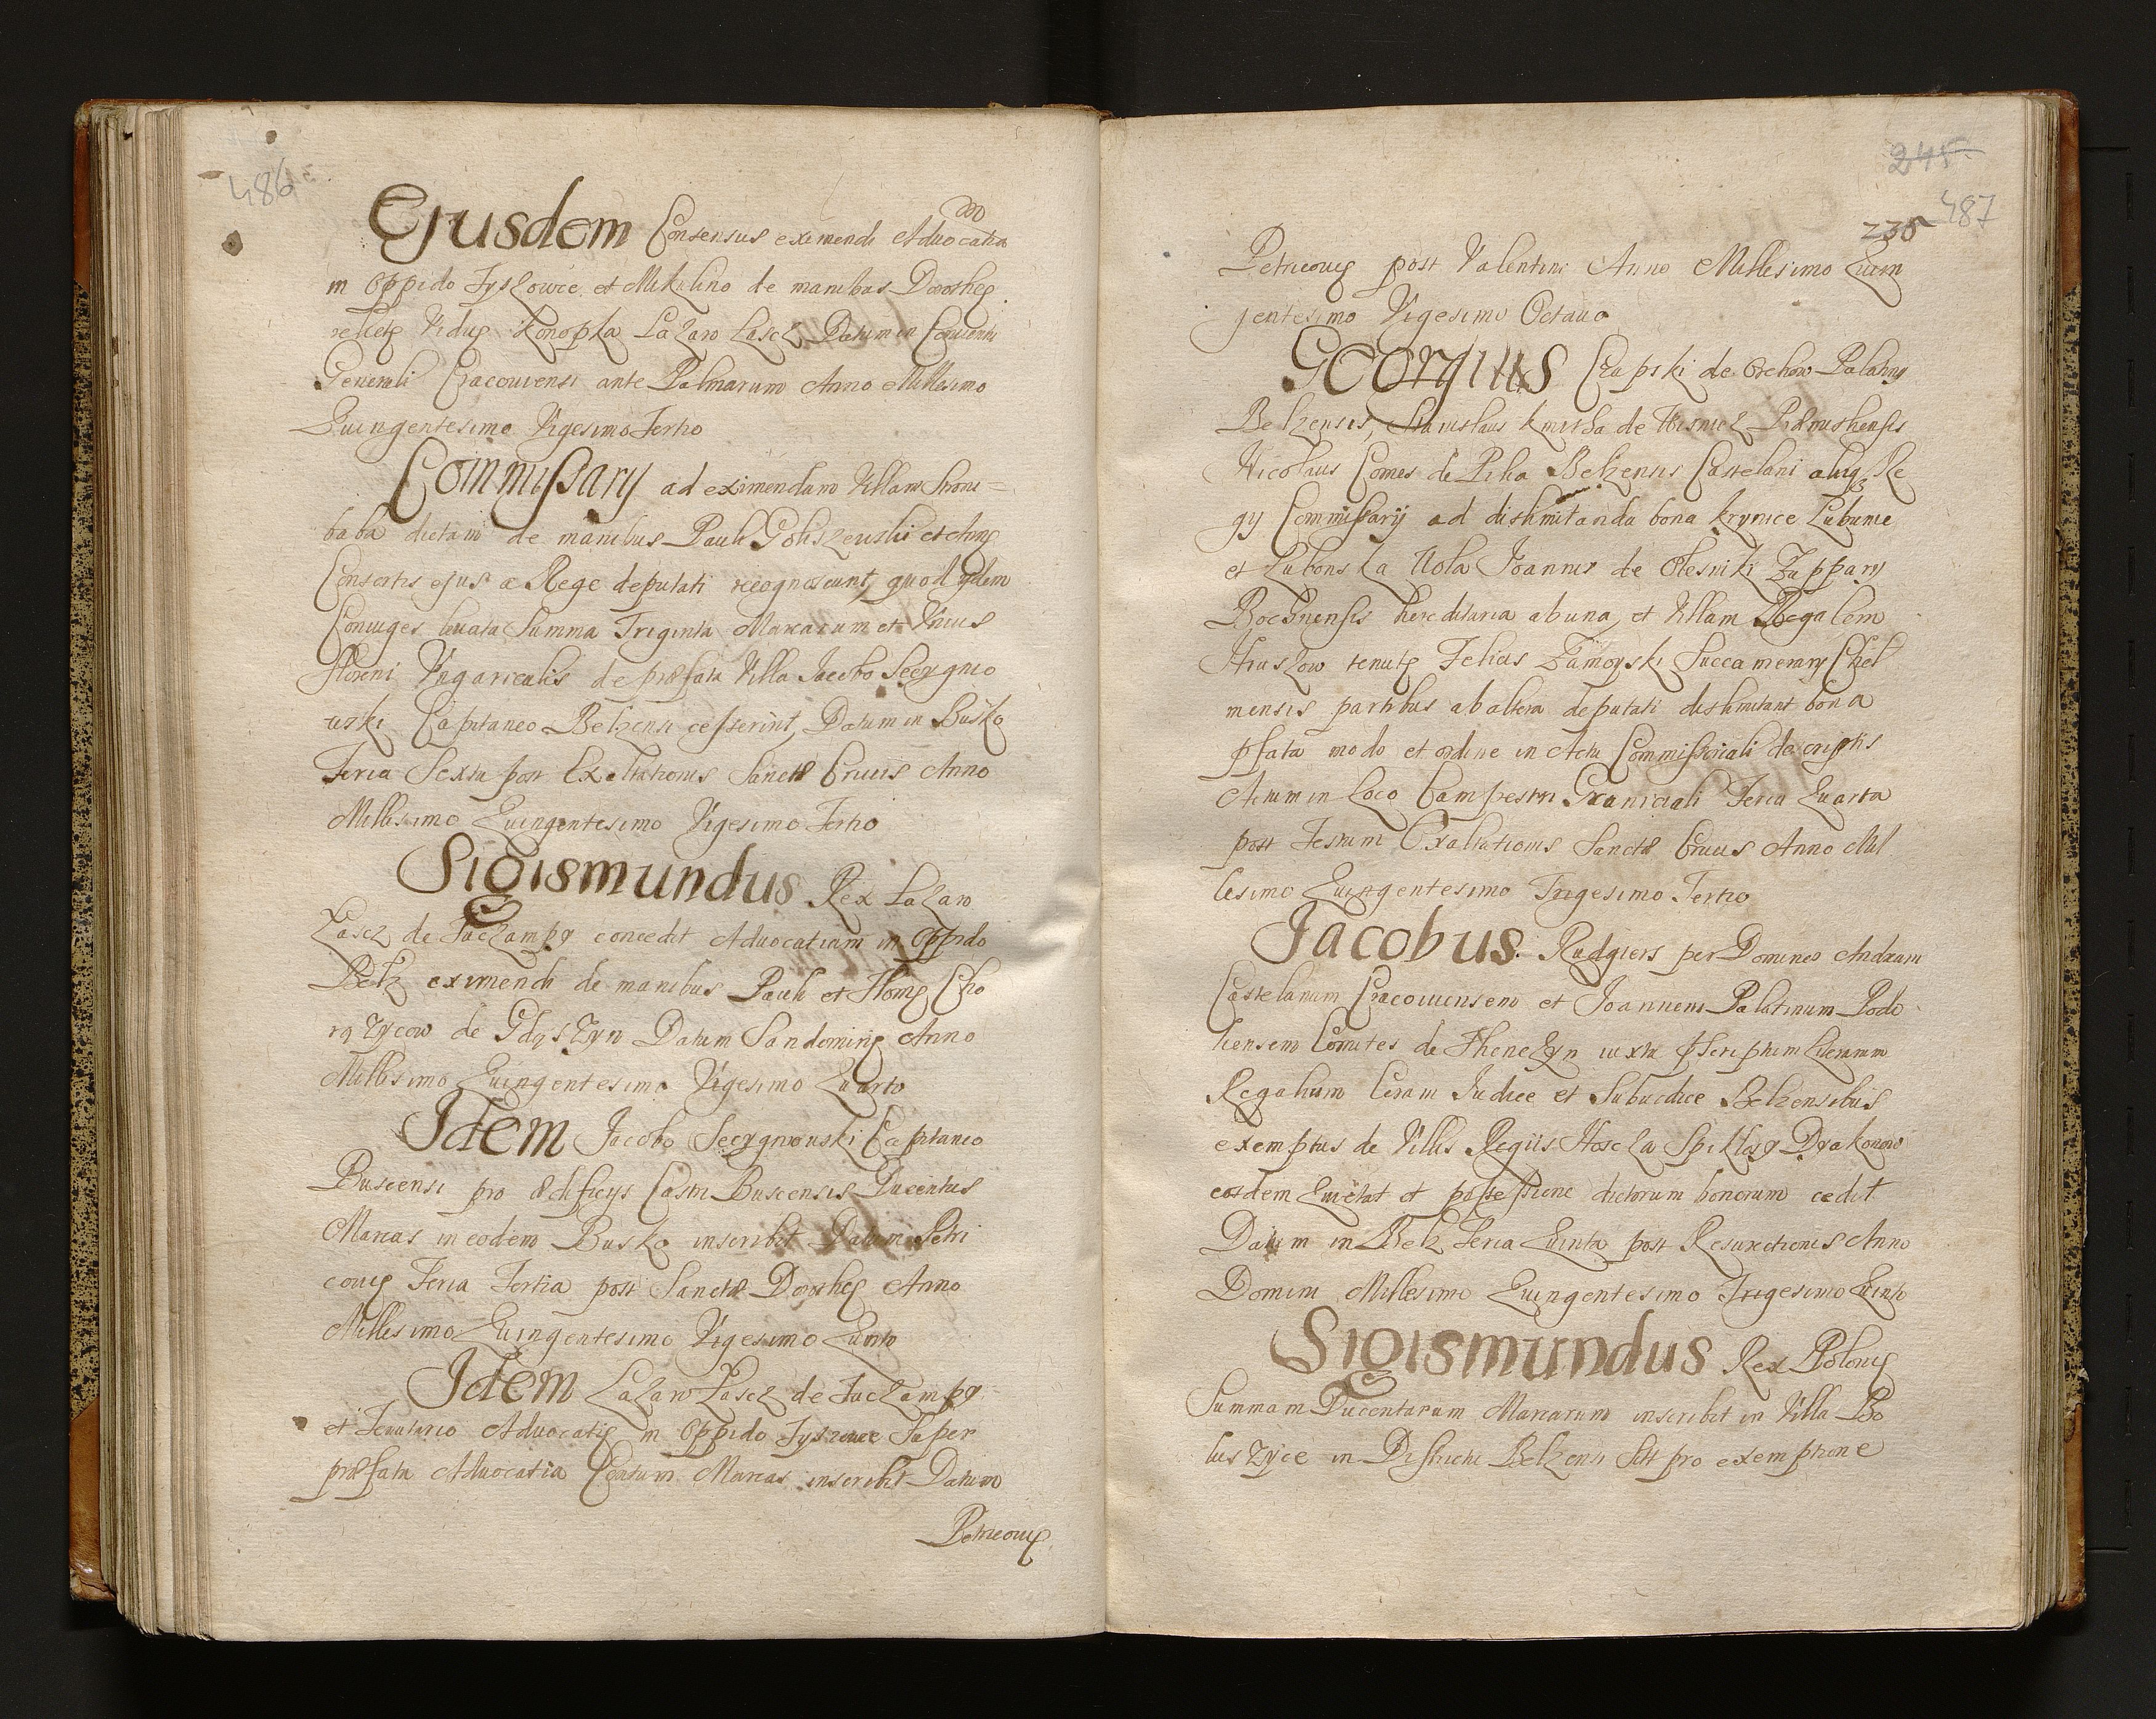 486
Ejusdem Consensus eximendi Advocatia
in Oppido Tyszowce et Mikulino de manibus Dorotheę
relictę Viduę Konopka Lazaro Lascz Datum in Conventu
Generali Cracoviensi ante Palmarum Anno Millesimo
Quingentesimo Vigesimo Tertio
Commissarij ad eximendam Villam
baba dictam de manibus Pauli et Annę
Consortis ejus a Rege deputati recognoscunt, quod ijdem
Conjuges levata Summa Triginta Marcarum et Unius
floreni Ungaricalis de præfata Villa Jacobo Secygnio
wski Capitaneo Belzensi cesserint, Datum in Busko
Feria Sexta post Exaltationis Sanctæ Crucis Anno
Millesimo Quingentesimo Vigesimo Tertio
Sigismundus Rex Lazaro
Lascz de Tuczampy concedit Advocatiam in Oppido
Belz eximendi de manibus Pauli et Thomę Cho
rązycow de Gdąszyn Datum Sandomirię Anno
Millesimo Quingentesimo Vigesimo Quarto
Idem Jacobo Secygniowski Capitaneo
Buscensi pro ædificijs Castri Buscensis Ducentas
Marcas in eodem Busko inscribit Datum Petri
covię Feria Tertia post Sanctæ Dorotheę Anno
Millesimo Quingentesimo Vigesimo Quinto
Idem Lazaro Lascz de Tuczampy
et Tenutario Advocatię in Oppido Tyszowce Super
præfata Advocatia Centum Marcas inscribit Datum
Petricovię
245
487
235
Petricovię post Valentini Anno Millesimo Quin
gentesimo Vigesimo Octavo
Georgius Crupski de Orchow Palatinus
Belzensis, Stanislaus Kmitha de Wisnicz
Nicolaus Comes de Pilca Belzensis Castelani aliiq Re
gij Commissarij ad dislimitanda bona Krynice Lubume
et Zubonska Wola Joannis de Olesniki Zupparij
Bochnensis hereditaria ab una, et Villam Regalem
Hruszow tenutę Felicis Zamoyski Succamerarij Chel
mensis partibus ab altera deputati dislimitant bona
pfata modo et ordine in Actu Commissoriali descriptis
Actum in Loco Campestri Graniciali Feria Quarta
post Festum Exaltationis Sanctæ Crucis Anno Mil
lesimo Quingentesimo Trigesimo Tertio
Jacobus Rudgiers per Dominos Andream
Castelanum Cracoviensem et Joannem Palatinum Podo
liensem Comites de Thenczyn iuxta pscriptum literarum
Regalium Coram Judice et Subiudice Belzensibus
exemptus de Villis Regijs Hoscza Spiklosy Dyakonow
eosdem Quietat et possessione dictorum bonorum cedit
Datum in Belz Feria Quinta post Resurectionis Anno
Domini Millesimo Quingentesimo Trigesimo Quinto
Sigismundus Rex Polonię
Summam Ducentarum Marcarum inscribit in Villa Bo
luszyce in Districtu Belzensi Siti pro exemptione